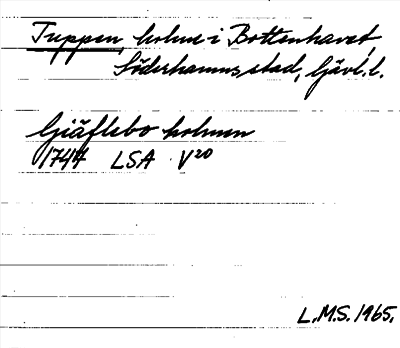 Tuppen, holme i Bottenhavet,
Söderhamns stad, Gävl. l.
Giäflebo holmen
1747 LSA V20
L.M.S. 1965.